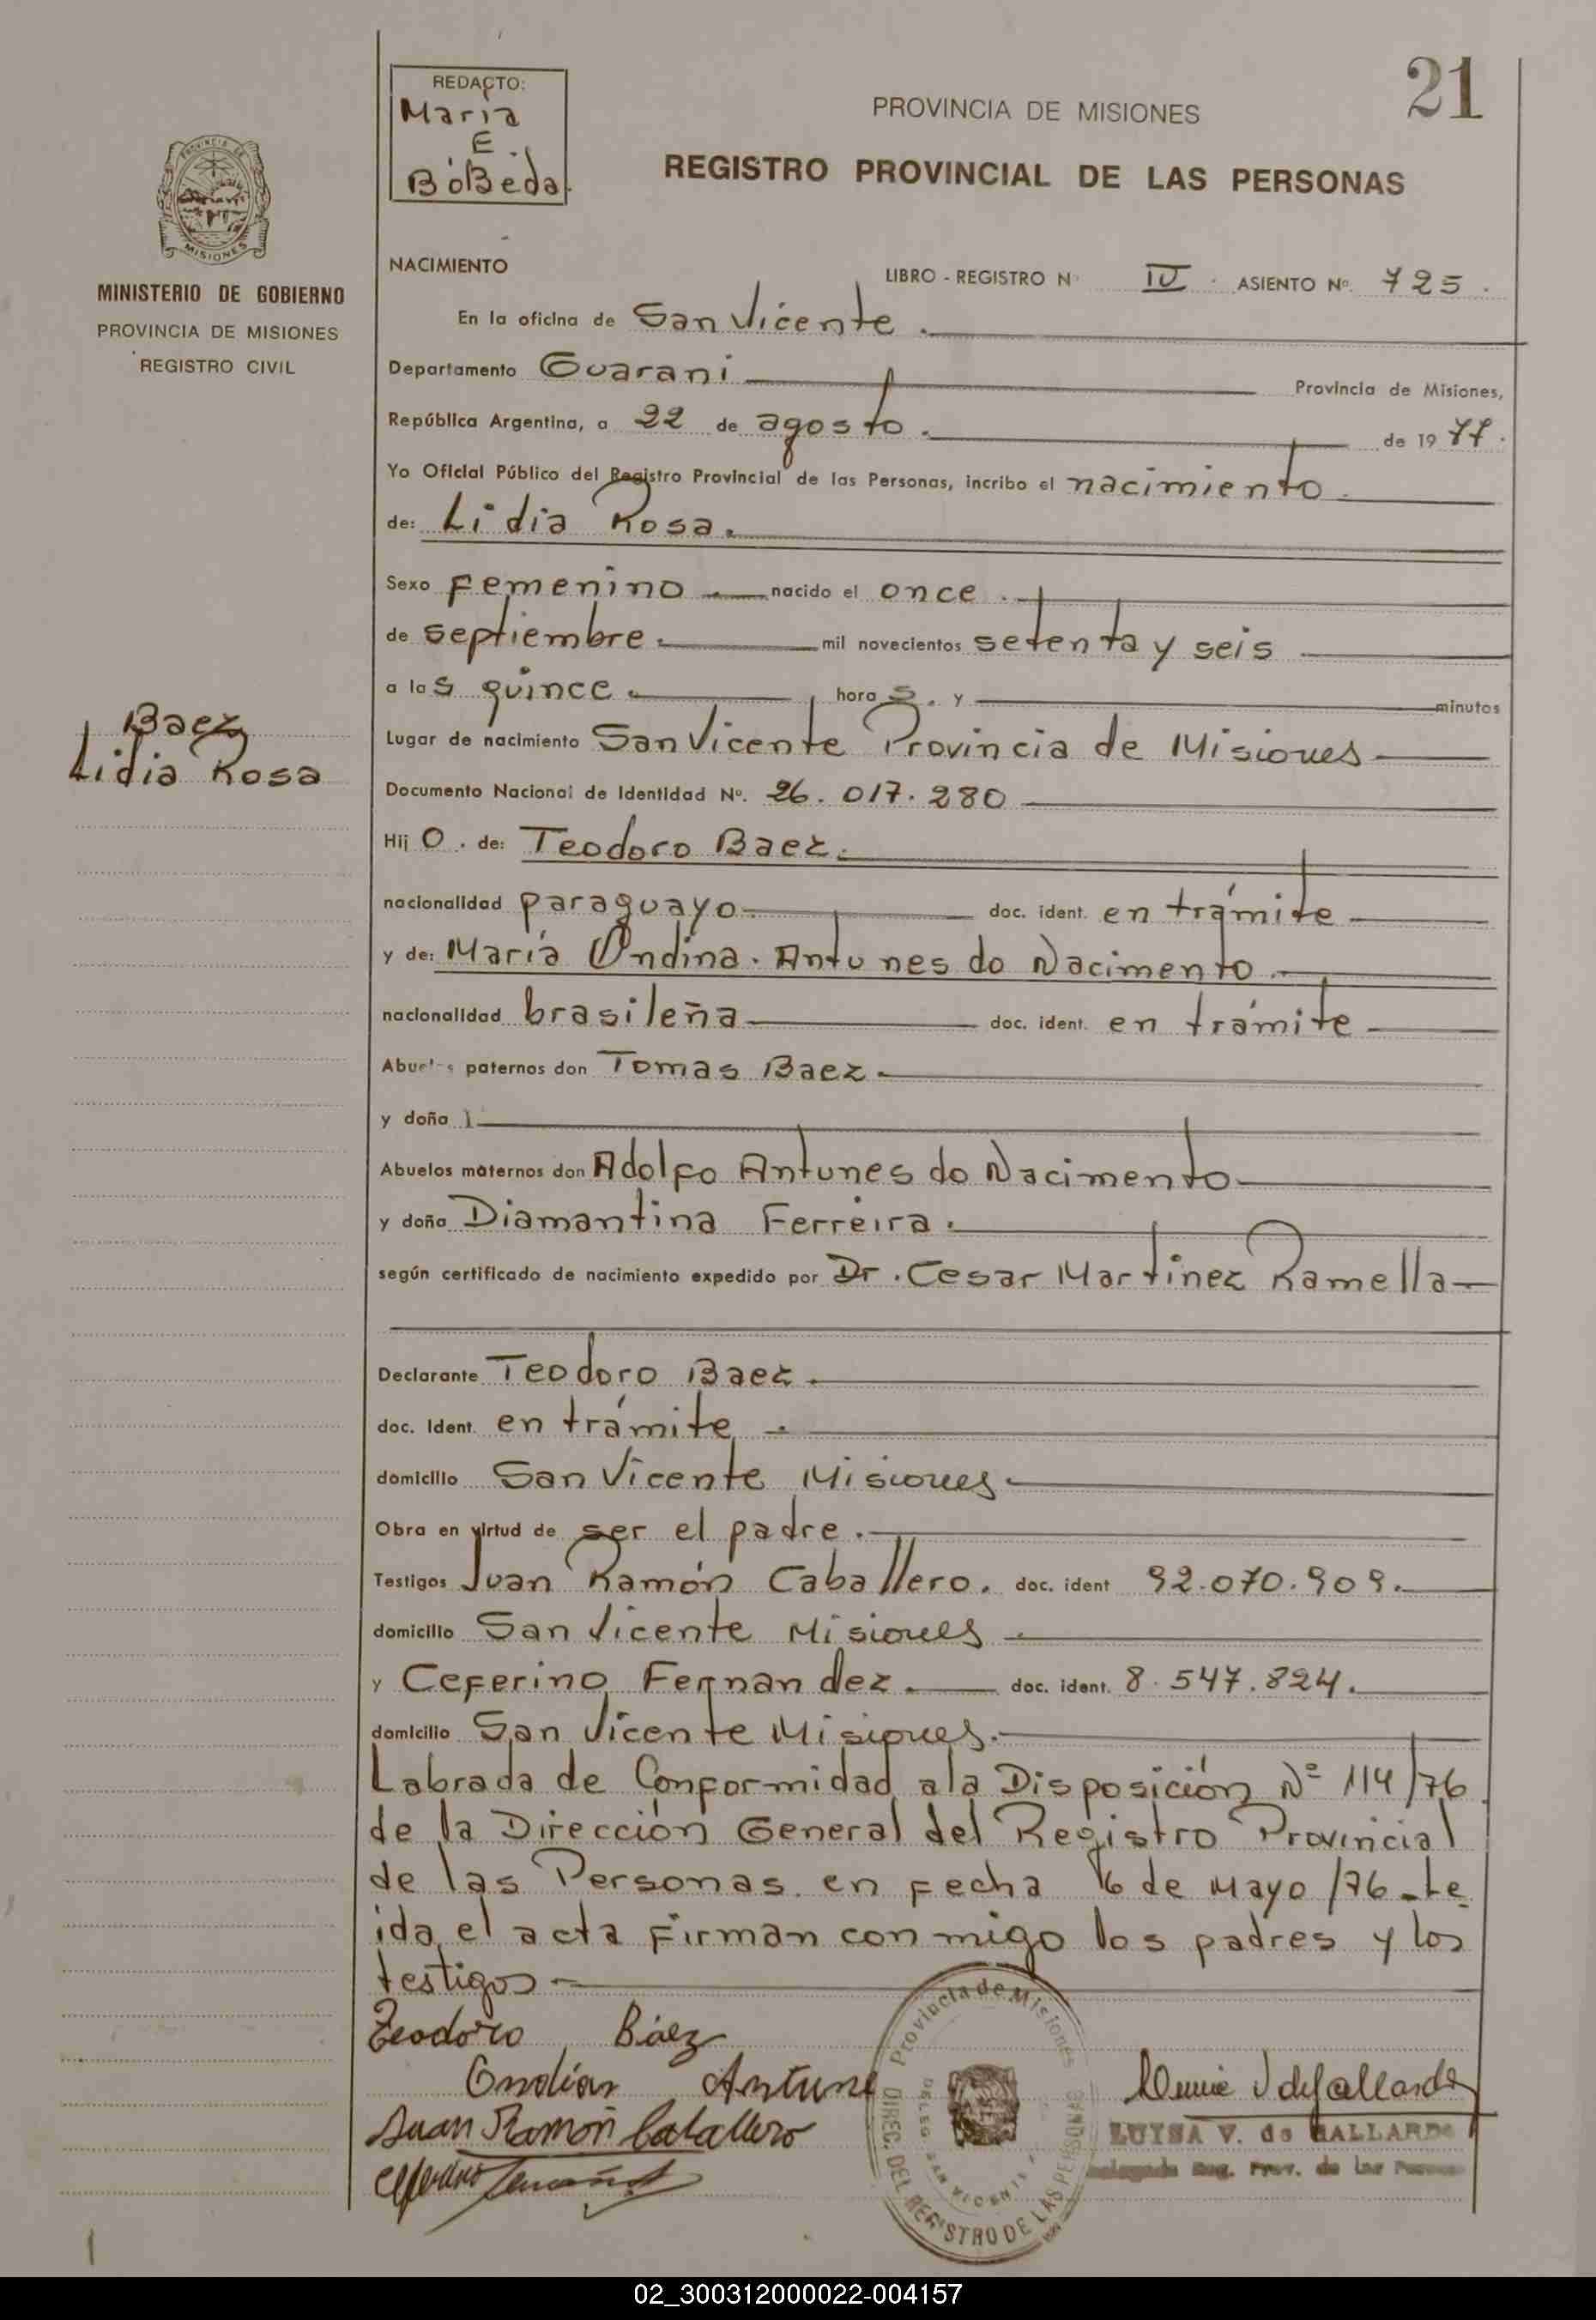 21
REDACTO:
Maria
E.
BoBeda.
PROVINCIA DE MISIONES
REGISTRO PROVINCIAL DE LAS PERSONAS
MISIONES
MINISTERIO DE GOBIERNO
PROVINCIA DE MISIONES
REGISTRO CIVIL
NACIMIENTO
LIBRO - REGISTRO Nº IV. ASIENTO Nº. 725.
En la oficina de San Vicente.
Departamento Guarani Provincia de Misiones,
República Argentina, a 22 de agosto. de 1977.
Yo Oficial Público del Registro Provincial de las Personas, incribo el nacimiento.
de: Lidia Rosa.
Sexo Femenino nacido el once.
de septiembre. mil novecientos setenta y seis
a las quince. horas. y minutos
Baez
Lidia Rosa
Lugar de nacimiento San Vicente Provincia de Misiones
Documento Nacional de Identidad Nº. 26.017.280
Hijo. de: Teodoro Baez.
nacionalidad paraguayo doc. ident. en trámite
y de: María Ondina. Antunes do Nacimento.
nacionalidad brasileña doc. ident. en trámite
Abuelos paternos don Tomas Baez.
y doña
Abuelos maternos don Adolfo Antunes do Nacimento
y doña Diamantina Ferreira.
según certificado de nacimiento expedido por Dr. Cesar Martinez Ramella
Declarante Teodoro Baez.
doc. Ident. en trámite.
domicilio San Vicente Misiones.
Obra en virtud de ser el padre.
Testigos Juan Ramón Caballero. doc. ident 92.070.909.
domicilio San Vicente Misiones.
y Ceferino Fernandez. doc. ident. 8.547.824.
domicilio San Vicente Misiones.
Labrada de Conformidad a la Disposición Nº 114/76
de la Dirección General del Registro Provincial
de las Personas en fecha 6 de Mayo /76 - Le
ida el acta Firman conmigo los padres y los
testigos
Teodoro Báez
Ondina Antune
Juan Ramón Caballero
Provincia de Misiones
DIREC. DEL REGISTRO DE LAS PERSONAS
DELEG. SAN VICENTE
LUYSA V. de GALLARDO
Delegada Reg. Prov. de las Personas
02_300312000022-004157